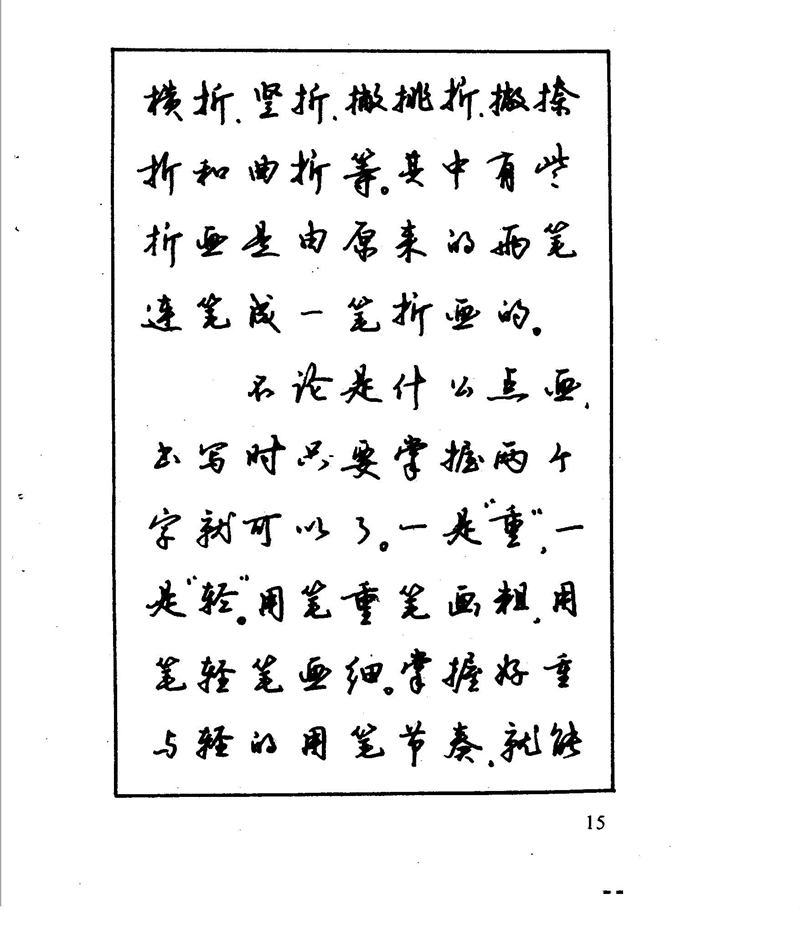 横折、竖折、撇挑折、撇捺
折和曲折等。其中有些
折画是由原来的两笔
连笔成一笔折画的。
不论是什么点画,
书写时只要掌握两个
字就可以了。一是“重”,一
是“轻”。用笔重笔画粗,用
笔轻笔画细。掌握好重
与轻的用笔节奏,就能
15